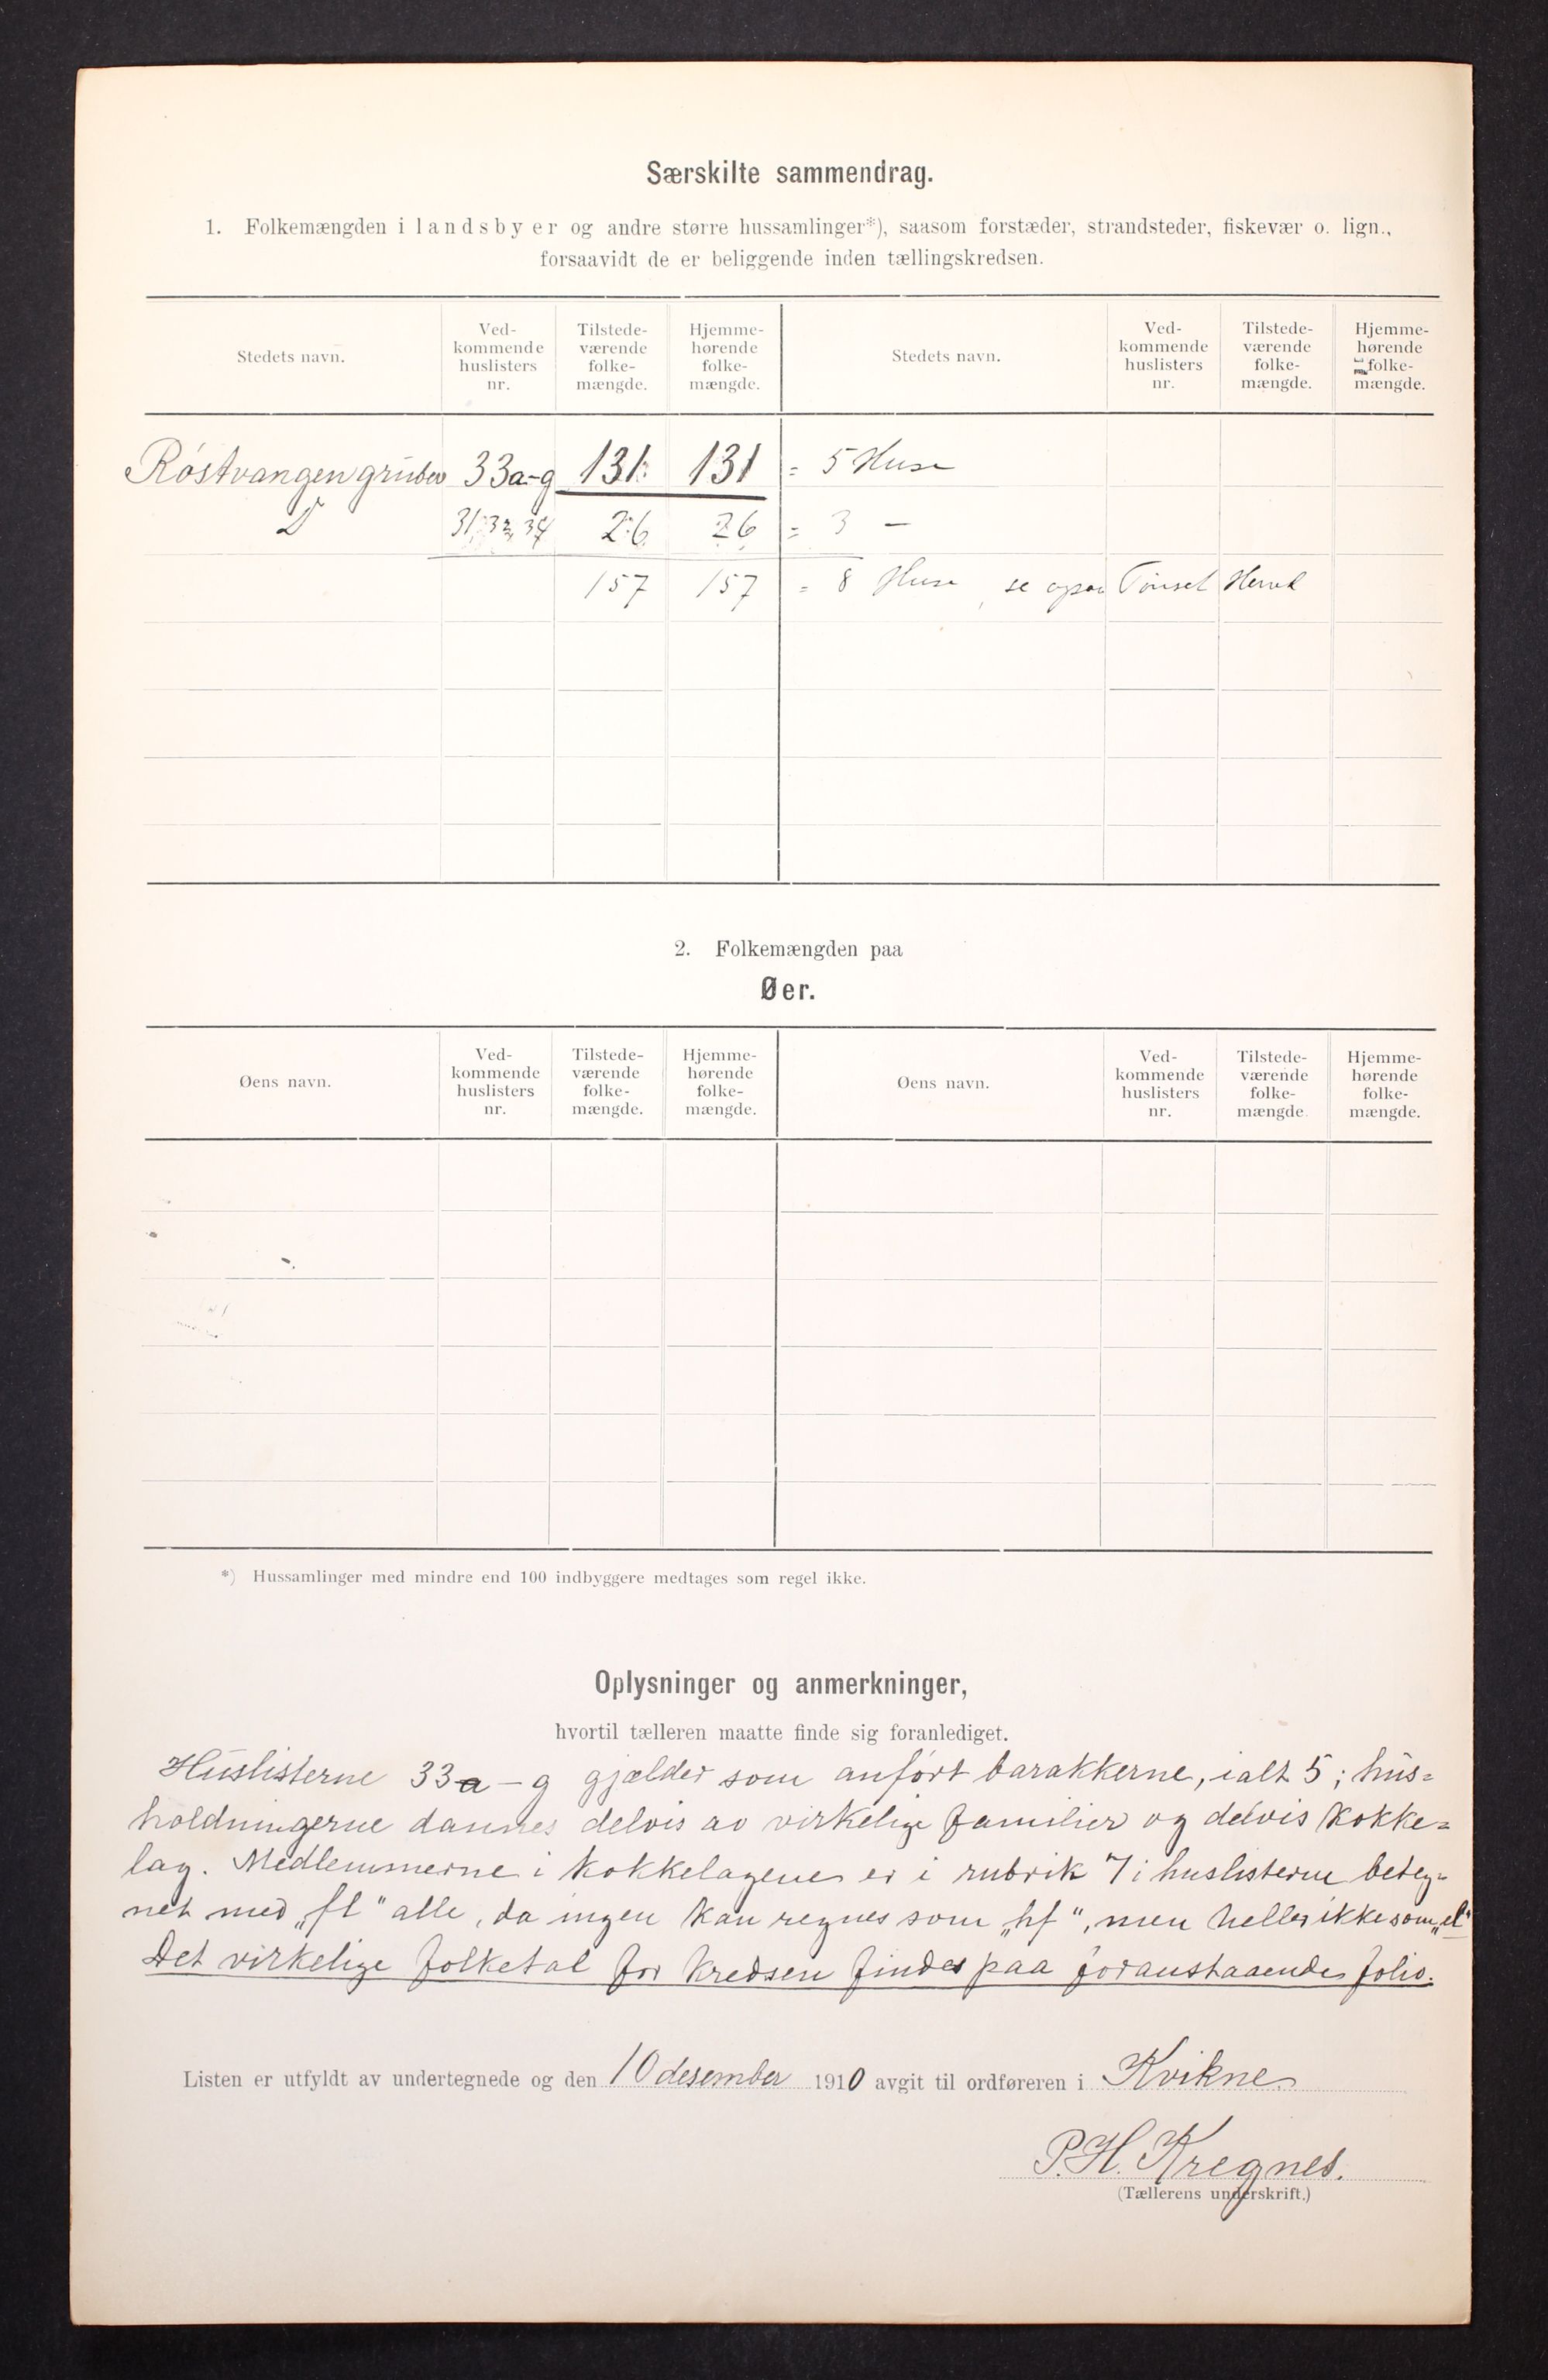 Særskilte sammendrag.
1. Folkemængden i landsbyer og andre større hussamlinger*), saasom forstæder, strandsteder, fiskevær o. lign.,
forsaavidt de er beliggende inden tællingskredsen.
Stedets navn. Ved-kommende huslisters nr. Tilstede-værende folke-mængde. Hjemme-hørende folke-mængde. Stedets navn. Ved-kommende huslisters nr. Tilstede-værende folke-mængde. Hjemme-hørende folke-mængde.
Røstvangen gruber 33a-g 131 131 = 5 Huse
31, 32, 34 26 26 = 3 —
157 157 = 8 Huse, se ogsaa Tønset Herred
2. Folkemængden paa
Øer.
Øens navn. Ved-kommende huslisters nr. Tilstede-værende folke-mængde. Hjemme-hørende folke-mængde. Øens navn. Ved-kommende huslisters nr. Tilstede-værende folke-mængde Hjemme-hørende folke-mængde.
*) Hussamlinger med mindre end 100 indbyggere medtages som regel ikke.
Oplysninger og anmerkninger,
hvortil tælleren maatte finde sig foranlediget.
Huslisterne 33a-g gjælder som anført barakkerne, ialt 5; hus=
holdningerne dannes delvis av virkelige familier og delvis kokke=
lag. Medlemmerne i kokkelagene er i rubrik 7 i huslisterne beteg=
net med „fl" alle, da ingen kan regnes som „hf", men heller ikke som „el"
Det virkelige folketal for kredsen findes paa foranstaaende folio.
Listen er utfyldt av undertegnede og den 10 desember 1910 avgit til ordføreren i Kvikne
P. H. Kregnes.
(Tællerens underskrift.)